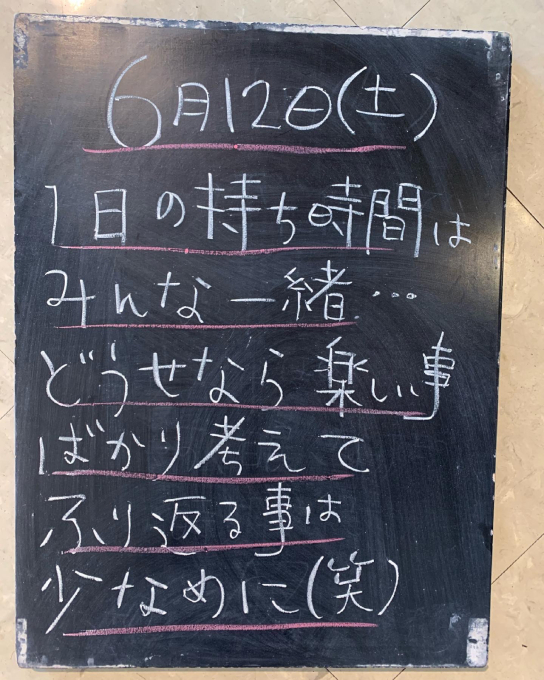 6月12日(土)
1日の持ち時間は
みんな一緒…
どうせなら楽しい事
ばかり考えて
ふり返る事は
少なめに(笑)